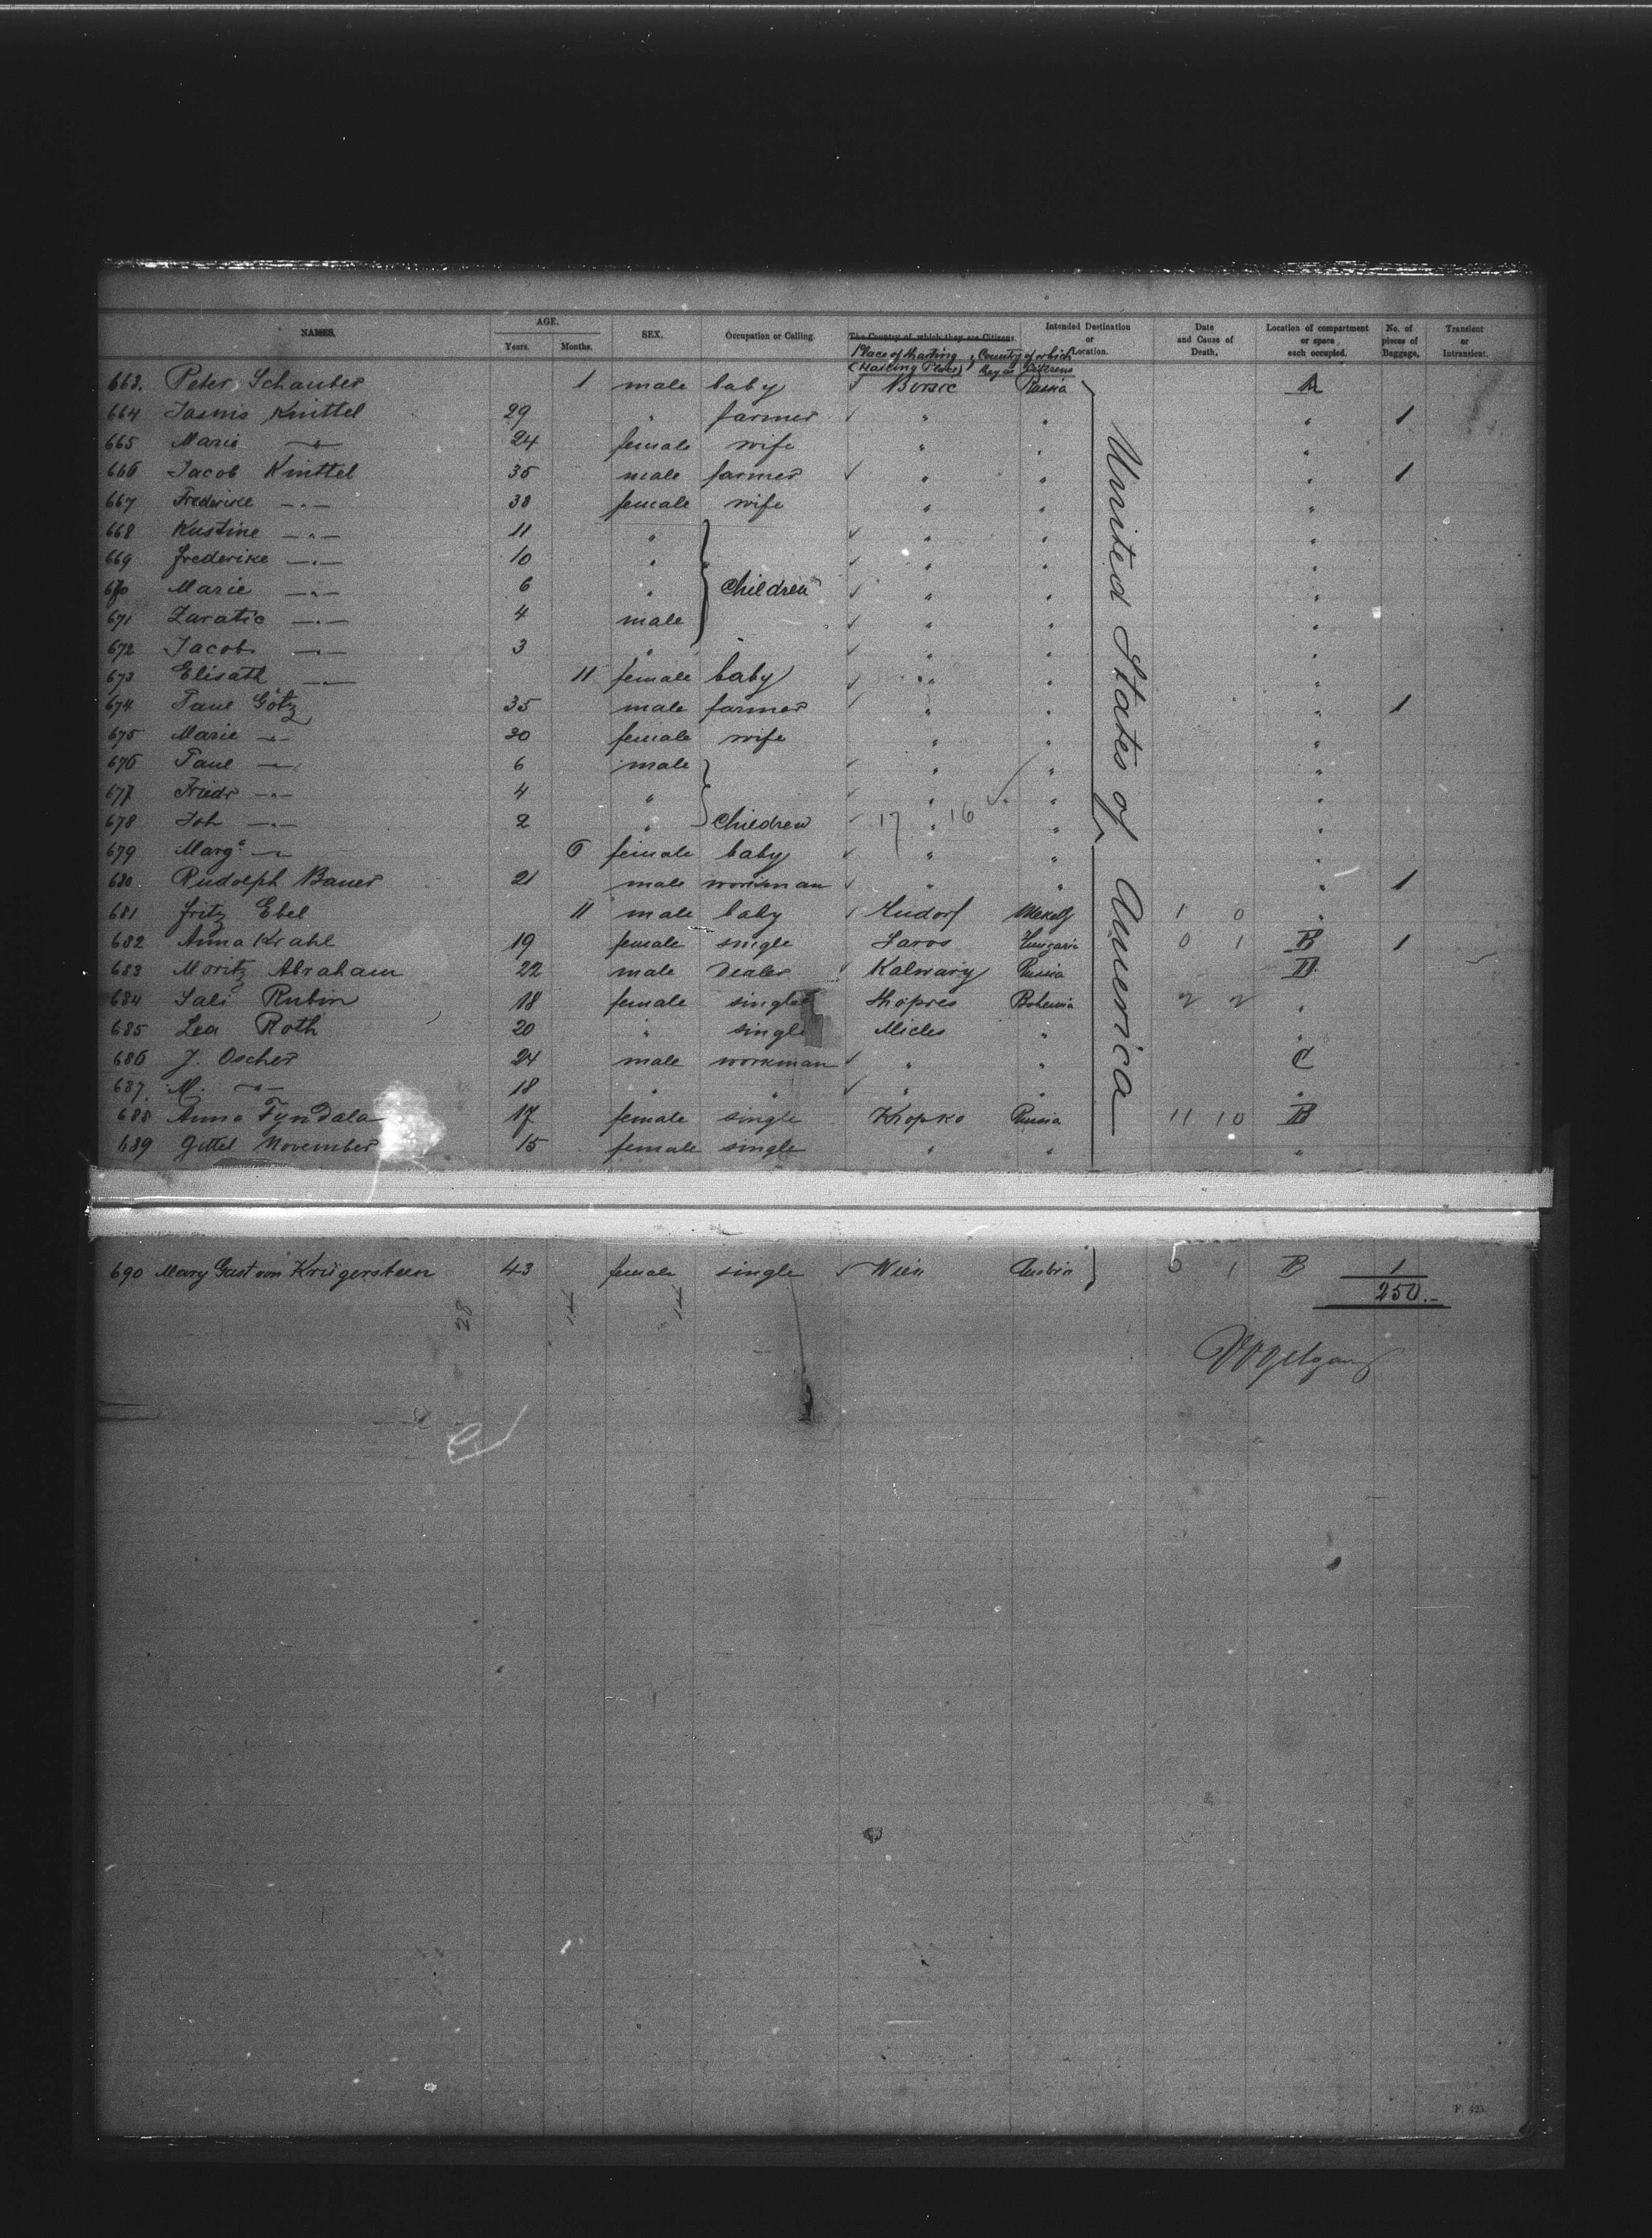 NAMES. AGE. Years. Months. SEX. Occupation or Calling The Country of which they are Citizens. Intended Destination or Location. Date and Cause of Death. Location of compartment or space each occupied. No. of pieces of Baggage. Transient or Intransient.
Place of Starting (Hailing Place) Country of which they are Citizens
663. Peter Schauber 1 male baby Russia A
664 Knittel 29 " farmer " " " 1
665 Marie -"- 24 female wife " " "
666 Jacob Knittel 35 male farmer " " " 1
667 Frederike -"- 38 female wife " " "
668 -"- 11 " " " "
669 Frederike -"- 10 " " " "
670 Marie -"- 6 " Children " " "
671 -"- 4 male " " "
672 Jacob -"- 3 " " " "
673 Elisath -"- 11 female baby " " "
674 Paul Götz 35 male farmer " " " 1
675 Marie -"- 30 female wife " " "
676 Paul -"- 6 male " " "
677 Friedr -"- 4 " " " "
678 Joh -"- 2 " Children 17 " 16 " "
679 Marg. -"- 6 female baby " " "
680 Rudolph Bauer 21 male workman " " " 1
681 Fritz Ebel 11 male baby 1 0 "
682 Anna Krahl 19 female single Hungaria 0 1 B 1
683 Moritz Abraham 22 male Dealer Kalwary Russia D
684 Sali Rubin 18 female single Bohemia 2 2 "
685 Lea Roth 20 " single " "
686 J. Oscher 24 male workman " " C
687. M. -"- 18 " " " " "
688 Anna Tyndala 17 female single Russia 11 10 B
689 Gittel November 15 female single " " "
United States of America
690 Mary Gast von Krügerstein 43 female single Wien Austria 5 1 B 1
250.-
28 14 14
F. 425